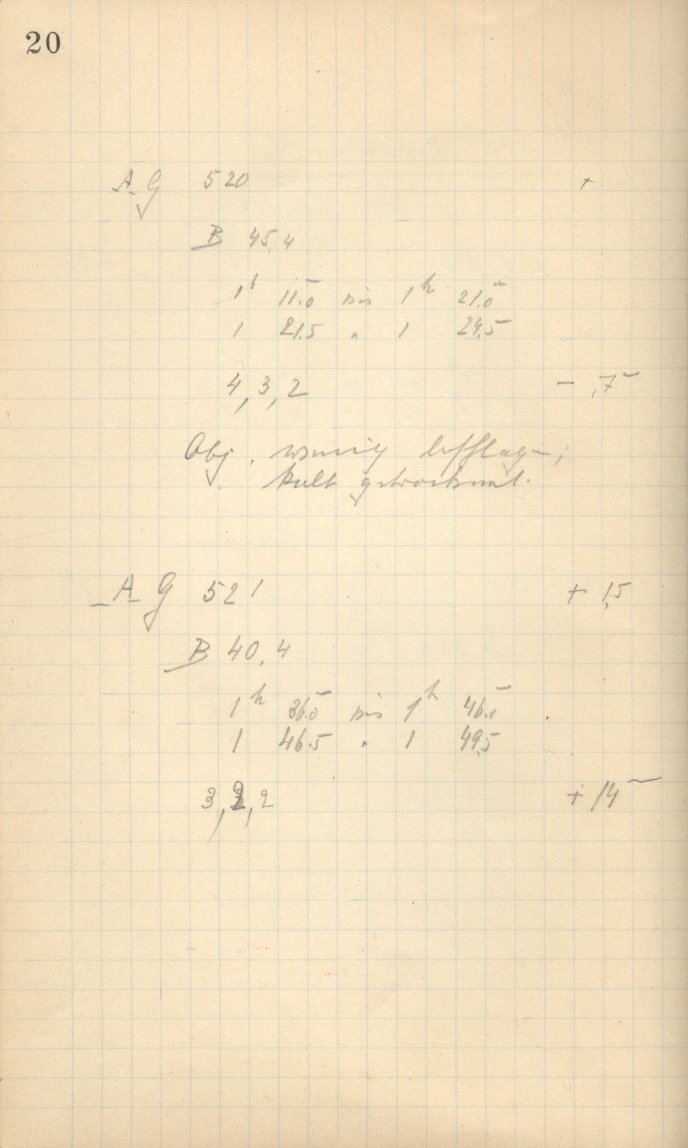 20
A G 520 +
B 45.4
1h 11.0m bis 1h 21.0m
1 21.5 " 1 24.5
4, 3, 2 - ,7m
Obj. wenig beschlagen;
kalt getrocknet.
A G 521 + 1,5
B 40.4
1h 36.0m bis 1h 46.0m
1 46.5 " 1 49.5
3, 2, 2 + 14m